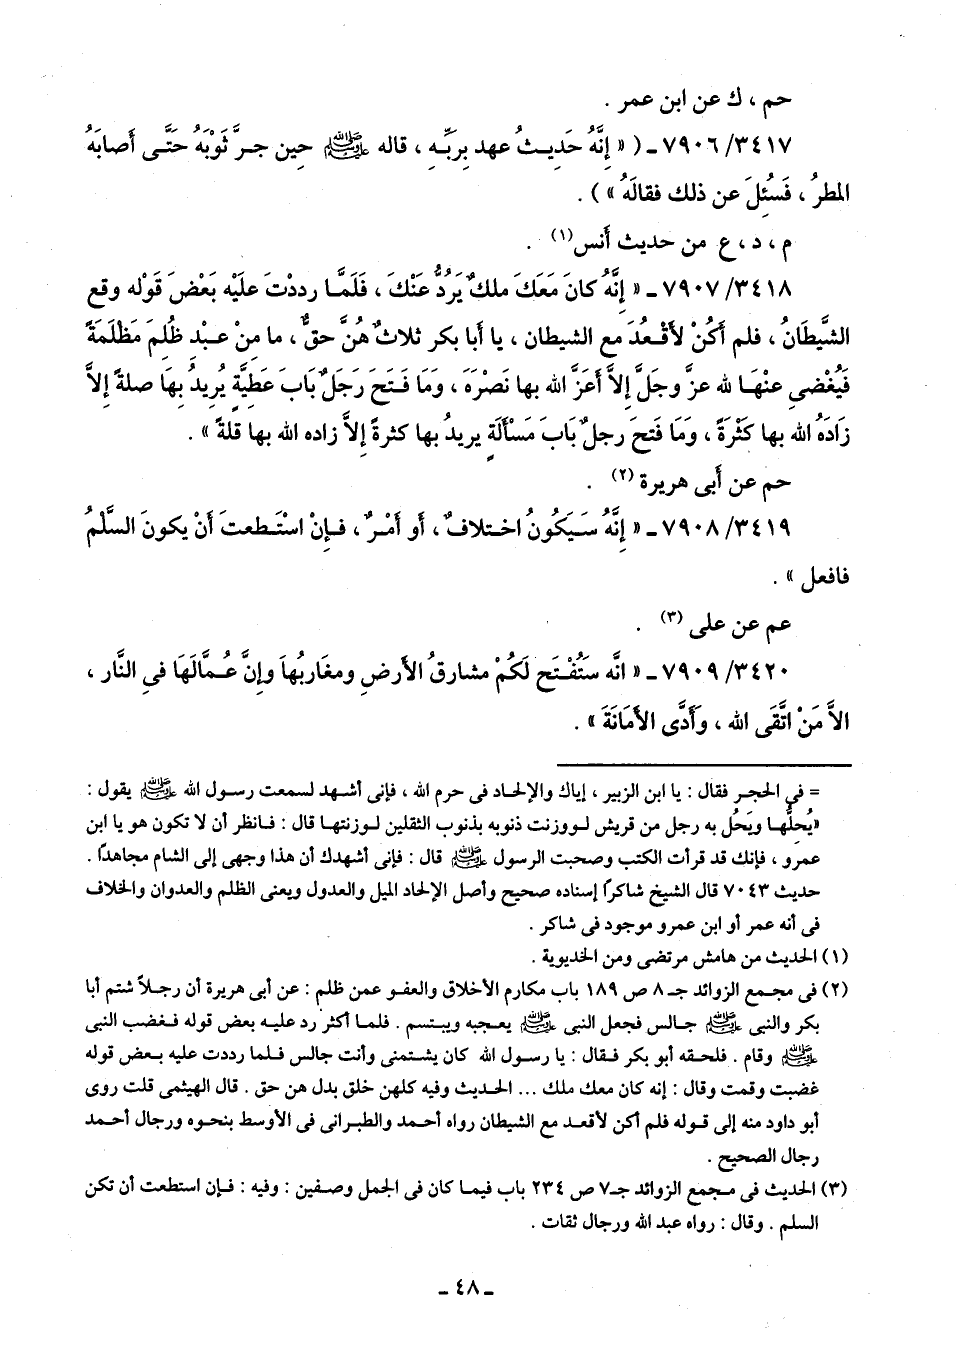 حم ، ك عن ابن عمر .
٣٤١٧/ ٧٩٠٦ ـ ( « إِنَّهُ حَدِيـثُ عهد بِرَبِّـهِ ، قاله ﷺ حِين جـرَّ ثَوْبَهُ حَتَّـى أَصابَهُ
المطرُ ، فَسُئِلَ عن ذلك فقالَهُ » ) .
م ، د ، ع من حديث أنس (١) .
٣٤١٨/ ٧٩٠٧ ـ « إِنَّهُ كانَ مَعَكَ ملكٌ يَرُدُّ عَنْكَ ، فَلَمَّا رددْتَ علَيْه بَعْضَ قَوْله وقع
الشَّيطَانُ ، فلم أَكُنْ لأَقْـعُدَ مع الشيطان ، يا أَبا بكر ثلاثٌ هُنَّ حقٌّ ، ما مِنْ عـبْدٍ ظُلِمَ مَظْلَمَةً
فَيُغْضِى عنْهَـا لله عزَّ وجَلَّ إلاَّ أَعَزَّ الله بها نَصْرَهَ ، وَمَا فَـتَحَ رَجَلٌ بَابَ عَطِيَّةٍ يُرِيدُ بِهَا صلةً إِلاَّ
زَادَهُ الله بها كَثْرَةً ، وَمَا فتحَ رجلٌ بابَ مَسْأَلَةٍ يريدُ بها كثرةً إِلاَّ زاده الله بها قلةً » .
حم عن أَبى هريرة (٢) .
٣٤١٩/ ٧٩٠٨ ـ « إِنَّهُ سَـيَكُونُ اخـتلافٌ ، أَو أَمْـرٌ ، فـإِنْ اسْتَـطعتَ أَنْ يكونَ السَّلْمُ
فافعل » .
عم عن على (٣) .
٣٤٢٠/ ٧٩٠٩ ـ « انَّه ستُفْـتَح لَكُمْ مشارقُ الأَرضِ ومغَاربُها وإِنَّ عُـمَّالَهَا فى النَّار ،
الاَّ مَنْ اتَّقَى الله ، وَأَدَّى الأَمَانَةَ » .
= فى الحجـر فقال : يا ابن الزبير ، إياك والإلحاد فى حرم الله ، فإنى أشهد لسمعت رسول الله ﷺ يقول :
«يُحِلُّهـا ويَحُل به رجل من قريش لـووزنت ذنوبه بذنوب الثقلين لـوزنتهـا قال : فـانظر أن لا تكون هو يا ابن
عمرو ، فإنك قد قرأت الكتب وصحبت الرسول ﷺ قال : فإنى أشهدك أن هذا وجهى إلى الشام مجاهدًا .
حديث ٧٠٤٣ قال الشيخ شاكرًا إسناده صحيح وأصل الإلحاد الميل والعدول ويعنى الظلم والعدوان والخلاف
فى أنه عمر أو ابن عمرو موجود فى شاكر .
(١) الحديث من هامش مرتضى ومن الخديوية .
(٢) فى مجـمع الزوائد جـ ٨ ص ١٨٩ باب مكارم الأخلاق والعفو عمن ظلم : عن أبى هريرة أن رجـلاً شتم أبا
بكر والنبى ﷺ جـالس فجعل النبى ﷺ يعـجبه ويبـتسم . فلمـا أكثر رد عليـه بعض قوله فـغضب النبى
ﷺ وقام . فلحقه أبو بكر فـقال : يا رسول الله كان يشـتمنى وأنت جالس فـلما رددت عليه بـعض قوله
غضبت وقمت وقال : إنه كان معك ملك ... الحـديث وفيه كلهن خلق بدل هن حق . قال الهيثمى قلت روى
أبو داود منه إلى قـوله فلم أكن لأقعـد مع الشيطان رواه أحـمد والطبـرانى فى الأوسط بنحـوه ورجال أحـمد
رجال الصحيح .
(٣) الحديث فى مـجمع الزوائد جـ٧ ص ٢٣٤ باب فيمـا كان فى الجمل وصفين : وفيه : فـإن استطعت أن تكن
السلم . وقال : رواه عبد الله ورجال ثقات .
ـ ٤٨ ـ